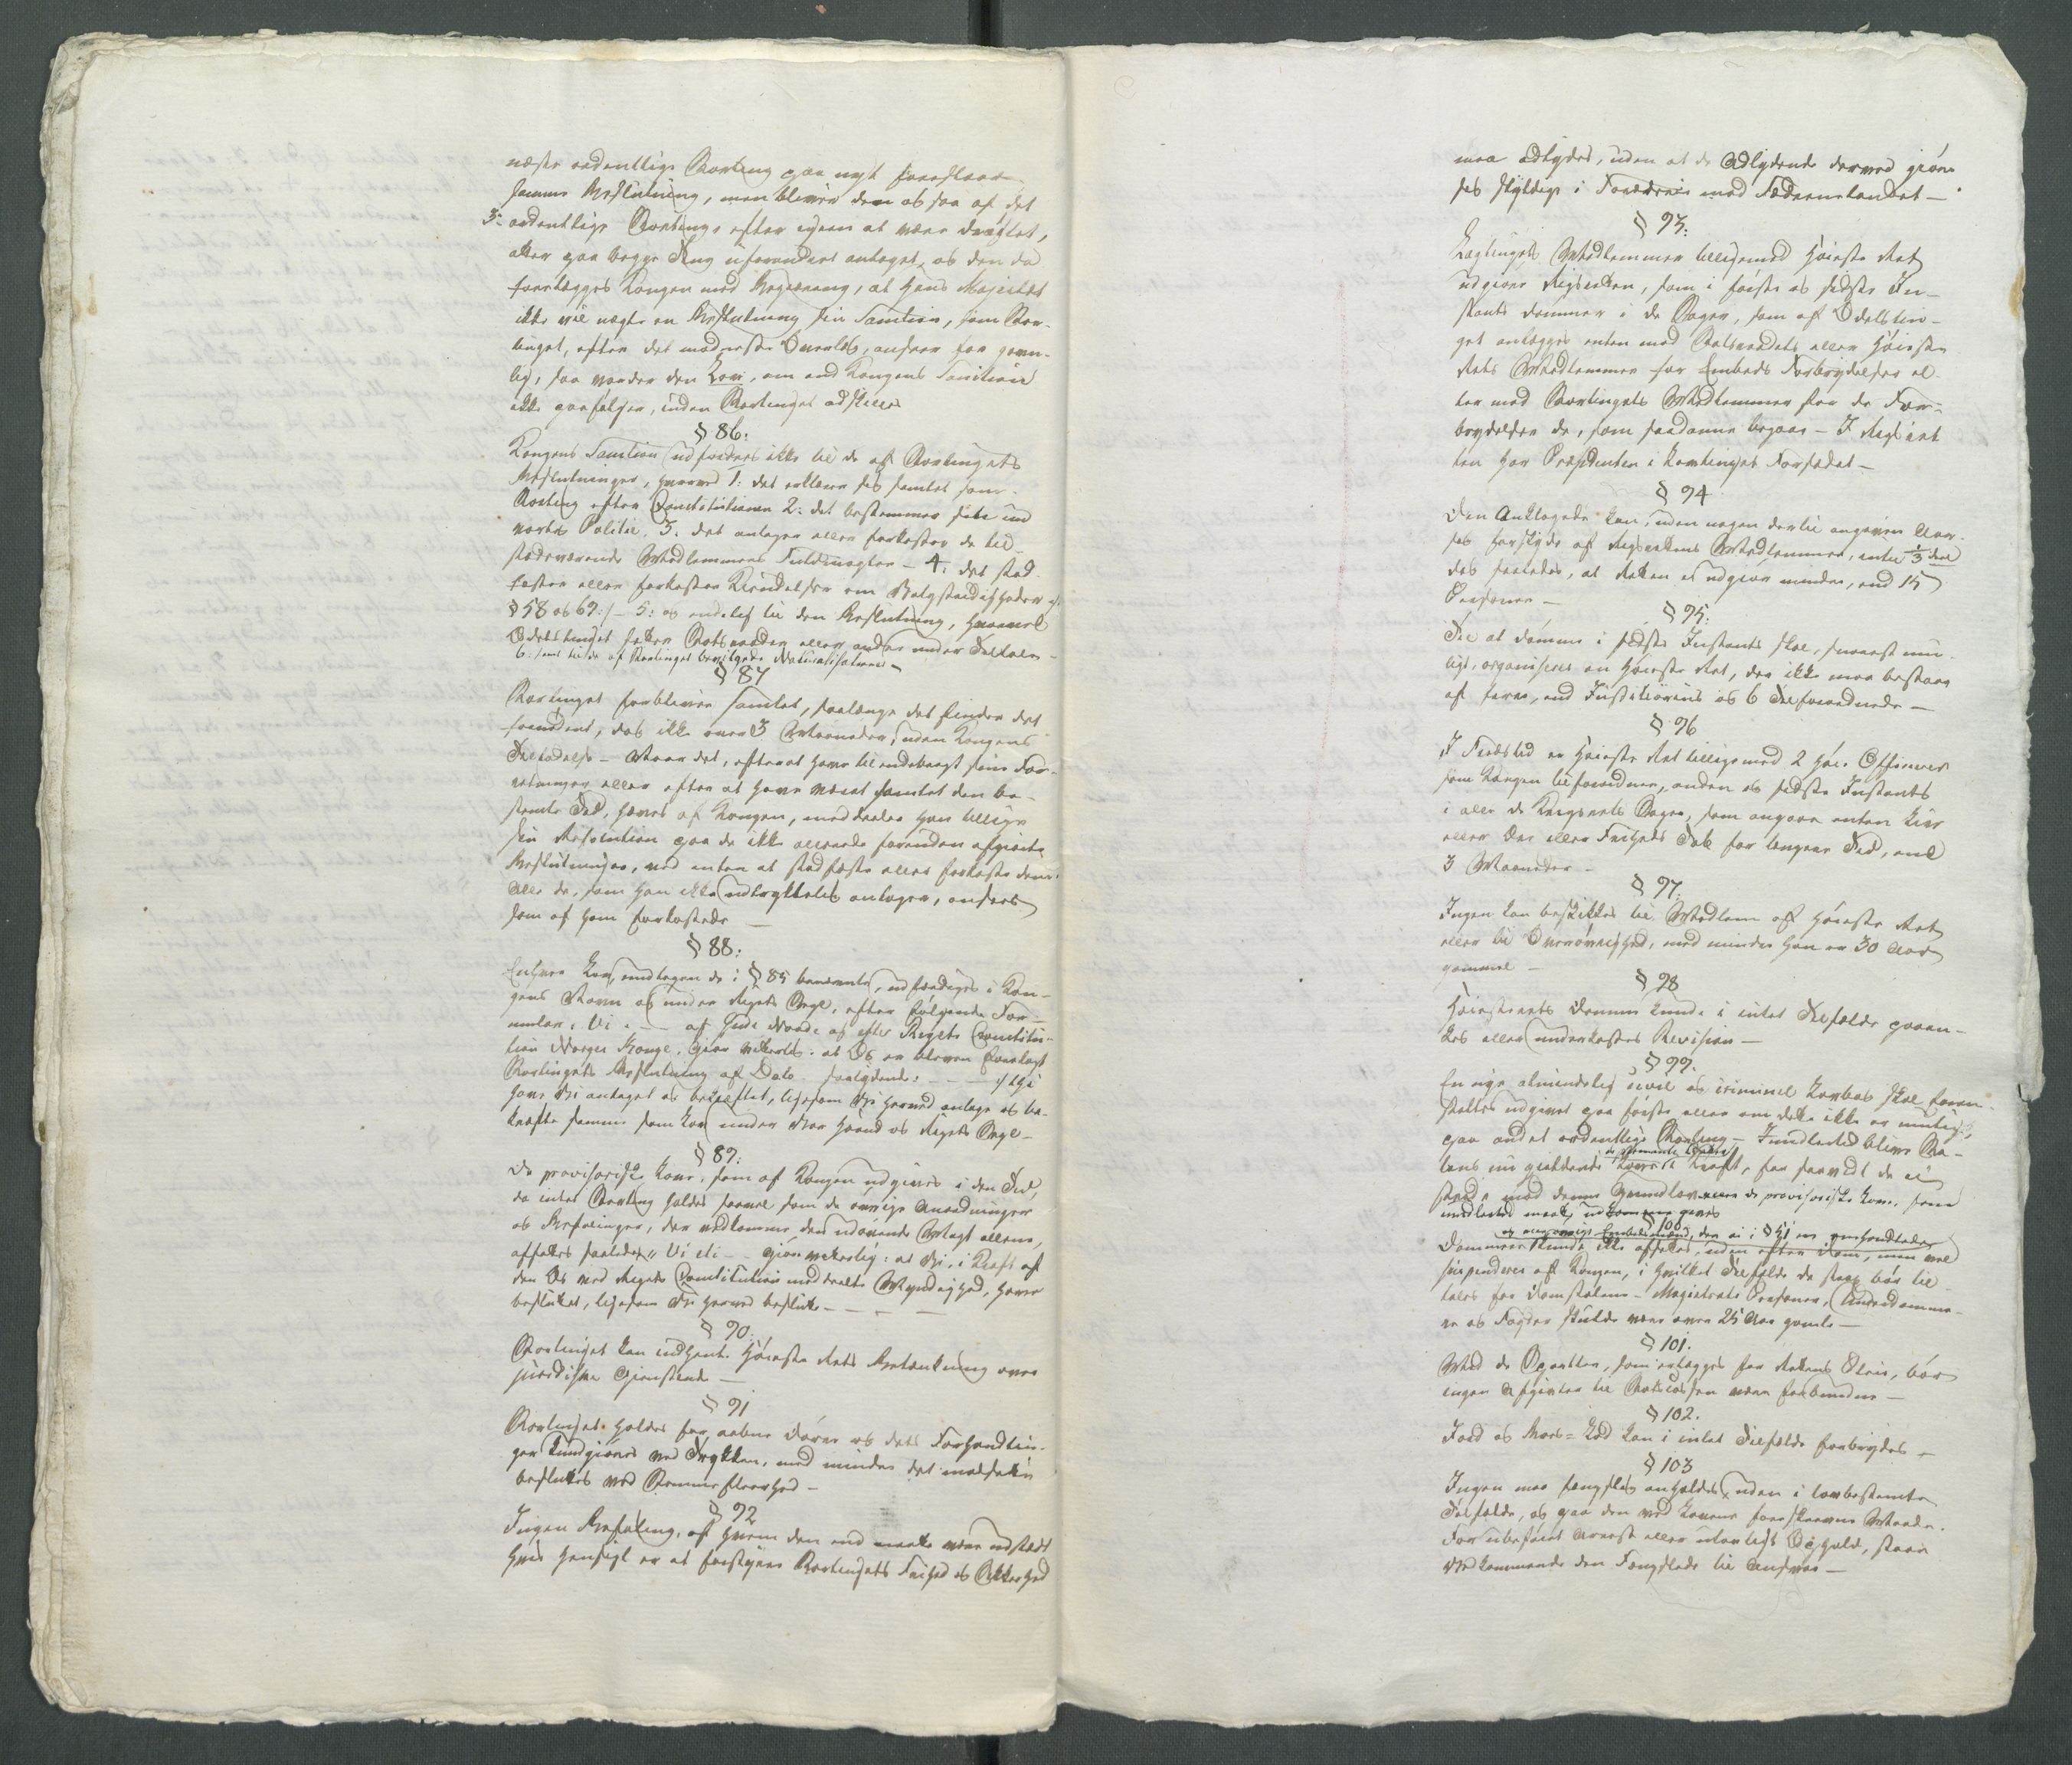 næste ordentlige Storting paa nyt foreslaae
samme Beslutning, men bliver den ogsaa af det
3die ordentlige Storting efter igien at være drøftet,
atter paa begge Ting uforandret antaget, og den da
forelægges Kongen med Begiæring, at Hans Majestæt
ikke vil nægte en Beslutning sin Sanction, som Stor-
tinget, efter det modneste Overlæg, anseer for gavn-
lig, saa vorder den Lov, om end Kongens Sanction
ikke paafølger, inden Stortinget adskilles
§ 86:
Kongens Sanction udfordres ikke til de af Stortingets
Beslutninger, hvorved 1: det erklærer sig samlet som
Storting efter Constitutionen 2: det bestemmer sit ind
vortes Politie. 3: det antager eller forkaster de til-
stædeværende Medlemmers Fuldmagter - 4: det stad-
fæster eller forkaster Kiendelser om Valgstridigheder
§ 58 og 69:/- 5: og endelig til den Beslutning, hvorved
Odelstinget sætter Statsraader eller andre under Tiltale -
6: samt til de af Stortinget bevilgede Naturalisationer -
§ 87
Stortinget forbliver samlet, saalænge det finder det
fornødent, dog ikke over 3 Maaneder, uden Kongens
Tilladelse - Naar det, efterat have tilendebragt sine For-
retninger eller efter at have været samlet den be-
stemte Tid, hæves af Kongen, meddeeler han tillige
sin Resolution paa de ikke allerede forinden afgiorte
Beslutninger, ved enten at stadfæste eller forkaste dem.
Alle de, som han ikke udtrykkelig antager, ansees
som af ham forkastede -
§ 88:
Enhver Lov, undtagen de i § 85 benævnte, udfærdiges i Kon-
gens Navn og under Rigets Segl, efter følgende For-
mular: Vi. - - af Guds Naade og efter Rigets Constitu-
tion Norges Konge. Giør vitterligt: at Os er bleven forelagt
Stortingets Beslutning af Dato saalydende: - - -
have Vi antaget og bekræftet, ligesom Vi herved antage og be-
kræfte samme som Lov under Vor Haand og Rigets Segl -
§ 89:
De provisoriske Love, som af Kongen udgives i den Tid,
da intet Storting holdes saavel som de øvrige Anordninger
og Befalinger, der vedkomme den udøvende Magt allene,
affattes saaledes, Vi etc - - giøre vitterlig: at Vi, i Kraft af
den Os ved Rigets Constitution meddeelte Myndighed, have
besluttet, ligesom Vi herved beslutte - - - -
§ 90:
Stortinget kan indhente Høieste Rets Betænkning over
juridiske Gienstande -
§ 91
Stortinget holdes for aabne Døre og dets Forhandlin-
ger kundgiøres ved Trykken, med mindre det modsatte
besluttes ved Stemmefleerhed -
§ 92
Ingen Befaling, af hvem den end maatte være udstædt
hvis Hensigt er at forstyrre Stortingets Frihed og Sikkerhed
maa adlydes, uden at de Adlydende derved giøre
sig skyldige i Forræderie mod Fædrenelandet -
§ 93:
Lagtingets Medlemmer tilligemed Høieste Ret
udgiøre Rigsretten, som i første og sidste In-
stants dømmer i de Sager, som af Odelstin-
get anlægges enten mod Statsraadets eller Høieste
Rets Medlemmer for Embeds Forbrydelser el-
ler mod Stortingets Medlemmer for de For-
brydelser de, som saadanne begaae - I Rigsret
ten har Præsidenten i Lagtinget Forsædet -
§ 94
Den Anklagede kan, uden nogen dertil angiven Aar-
sag forskyde af Rigsrettens Medlemmer, indtil 1/3 deel
dog saaledes, at Retten ei udgiør mindre, end 15
Personer -
§ 95:
Til at dømme i sidste Instants skal, snarest mu-
ligt, organiseres en Høieste Ret, der ikke maa bestaae
af færre, end Justitiarius og 6 Tilforordnede -
§ 96
I Fredstid er Høieste Ret tilligemed 2 høie Officerer
som Kongen tilforordner, anden og sidste Instants
i alle de Krigsrets Sager, som angaae enten Liv
eller Ære eller Friheds Tab for længere Tid, end
3 Maaneder -
§ 97:
Ingen kan beskikkes til Medlem af Høieste Ret
eller til Overøvrighed, med mindre han er 30 Aar
gammel -
§ 98
Høiesterets Domme kunde i intet Tilfælde paaan-
kes eller underkastes Revision -
§ 99.
En nye almindelig civil og criminel Lovbog skal foran-
staltes udgivet paa første eller om dette ikke er muligt,
paa andet ordentlige Storting - Imidlertid blive Sta-
tens nu gieldende Love i Kraft, for saavidt de ei
stride mod denne Grundlov eller de provisoriske Love, som
imidlertid maatte udkomme
§ 100
og øvrige Embedsmænd, der ei i § 51 ere omhandlede
Dommere kunde ikke afsættes, uden efter Dom, men vel
suspenderes af Kongen, i hvilket Tilfælde de strax bør til-
tales for Domstolene - Magistrats Personer, Underdomme-
re og Fogder skulde være over 25 Aar gamle -
§ 101.
Med de Sportler, som erlægges for Rettens Pleie, bør
ingen Afgivter til Statscassen være forbundne -
§ 102.
Jord og Boes-Lod kan i intet Tilfælde forbrydes -
§ 103
Ingen maa fængslig anholdes, uden i lovbestemte
Tilfælde, og paa den ved Lovene foreskrevne Maade.
For ubeføiet Arrest eller ulovligt Ophold, staaer
Vedkommende den Fængslede til Ansvar -